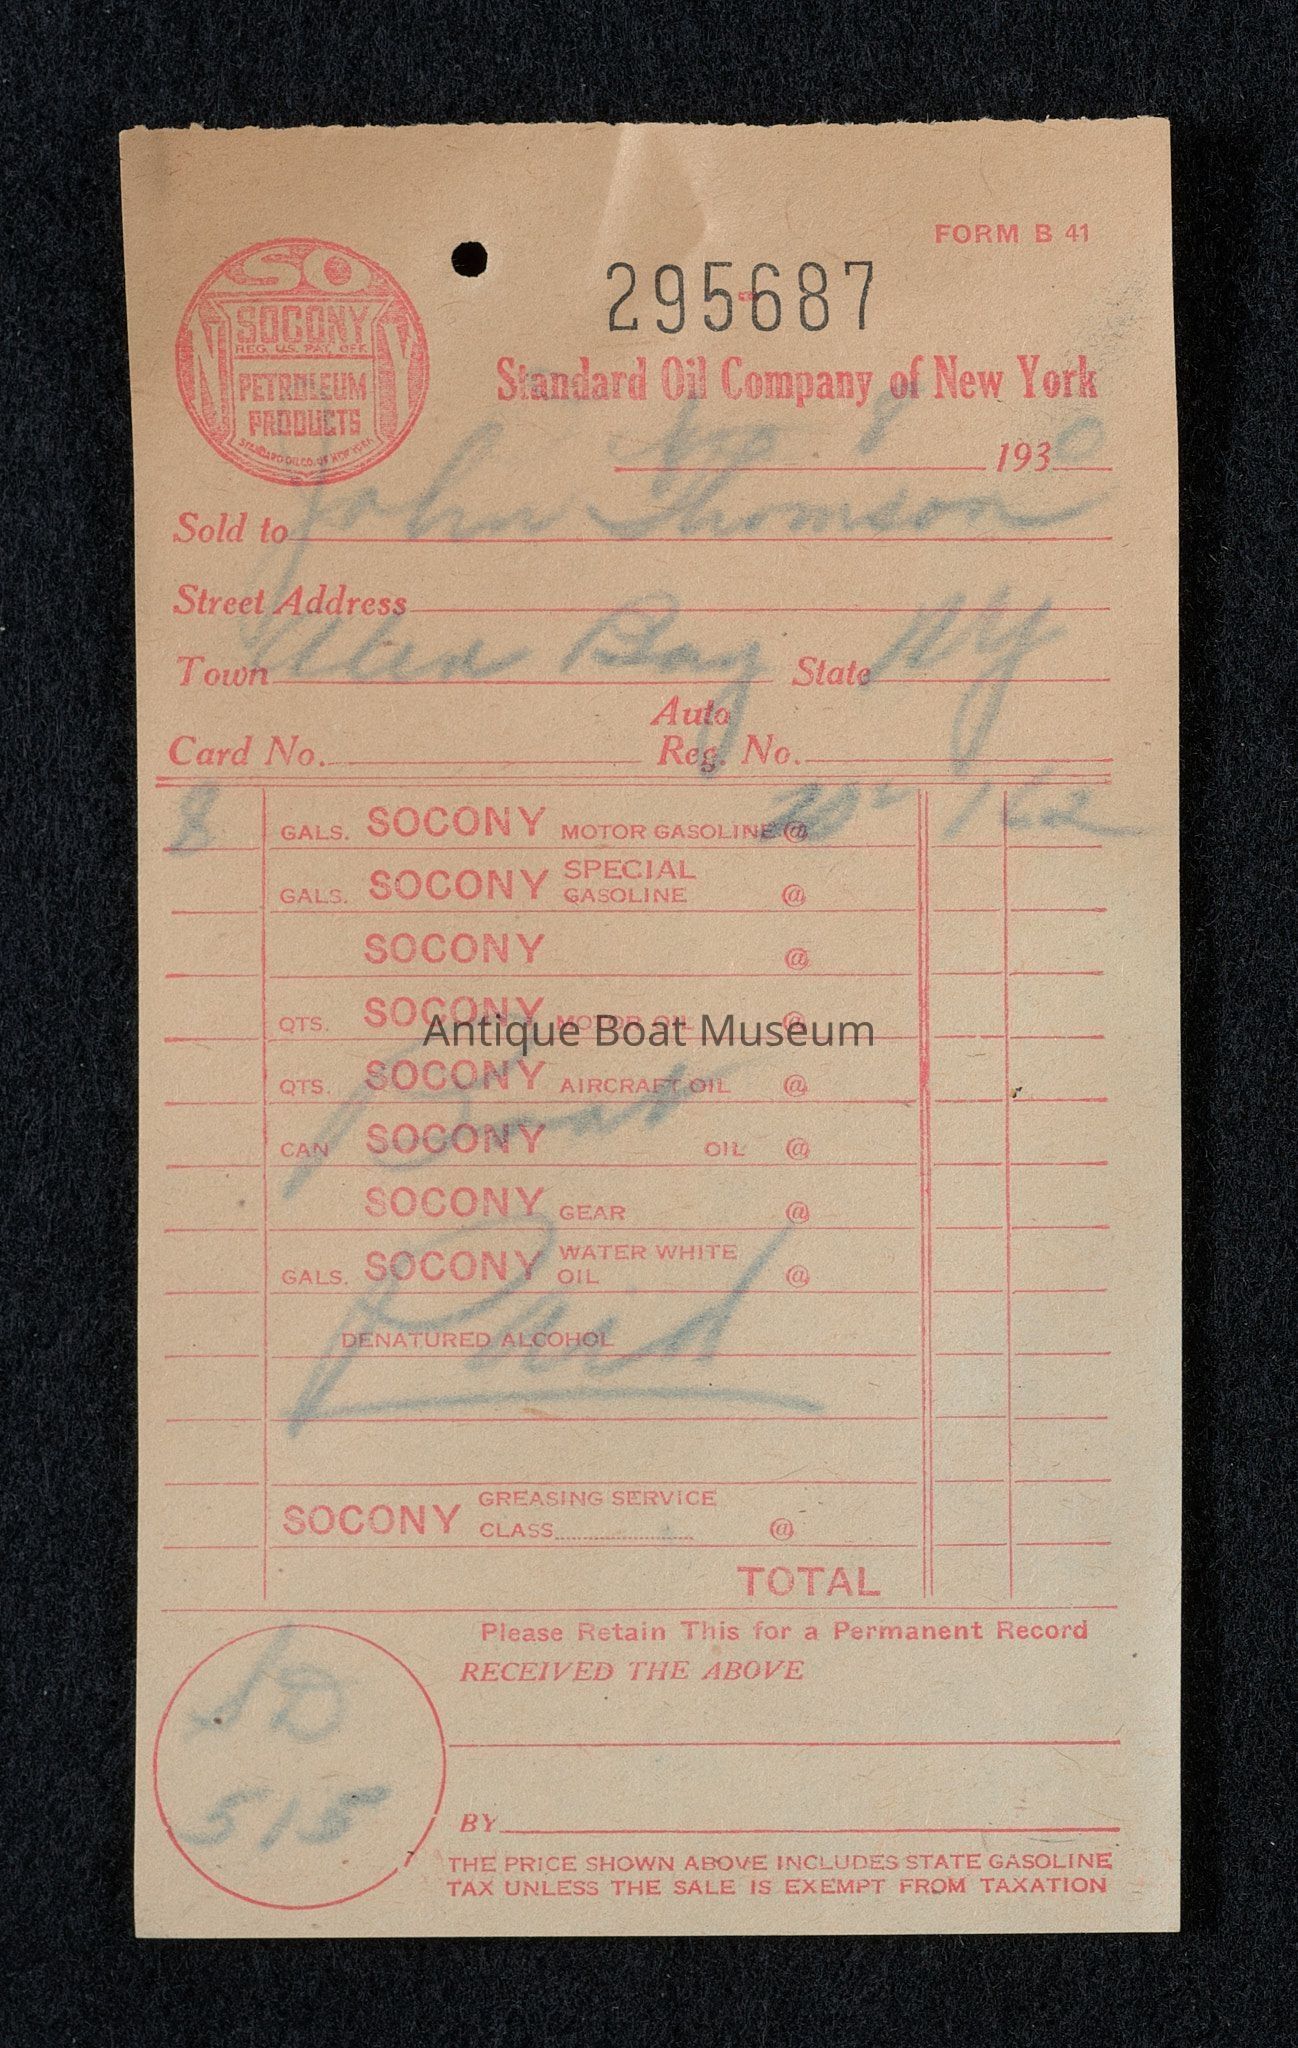 FORM B 41
SO
SOCONY
REG. U.S. PAT. OFF.
PETROLEUM
PRODUCTS
STANDARD OIL CO. OF NEW YORK
NY
295687
Standard Oil Company of New York
8 1930
Sold to John Thomson
Street Address
Town Alex Bay State NY
Auto
Card No. Reg. No.
8 GALS. SOCONY MOTOR GASOLINE @ 162
GALS. SOCONY SPECIAL GASOLINE @
SOCONY @
QTS. SOCONY MOTOR OIL @
Antique Boat Museum
QTS. SOCONY AIRCRAFT OIL @
Boat
CAN SOCONY OIL @
SOCONY GEAR @
GALS. SOCONY WATER WHITE OIL @
Paid
DENATURED ALCOHOL
SOCONY GREASING SERVICE
CLASS @
TOTAL
Please Retain This for a Permanent Record
RECEIVED THE ABOVE
SD
515
BY
THE PRICE SHOWN ABOVE INCLUDES STATE GASOLINE
TAX UNLESS THE SALE IS EXEMPT FROM TAXATION